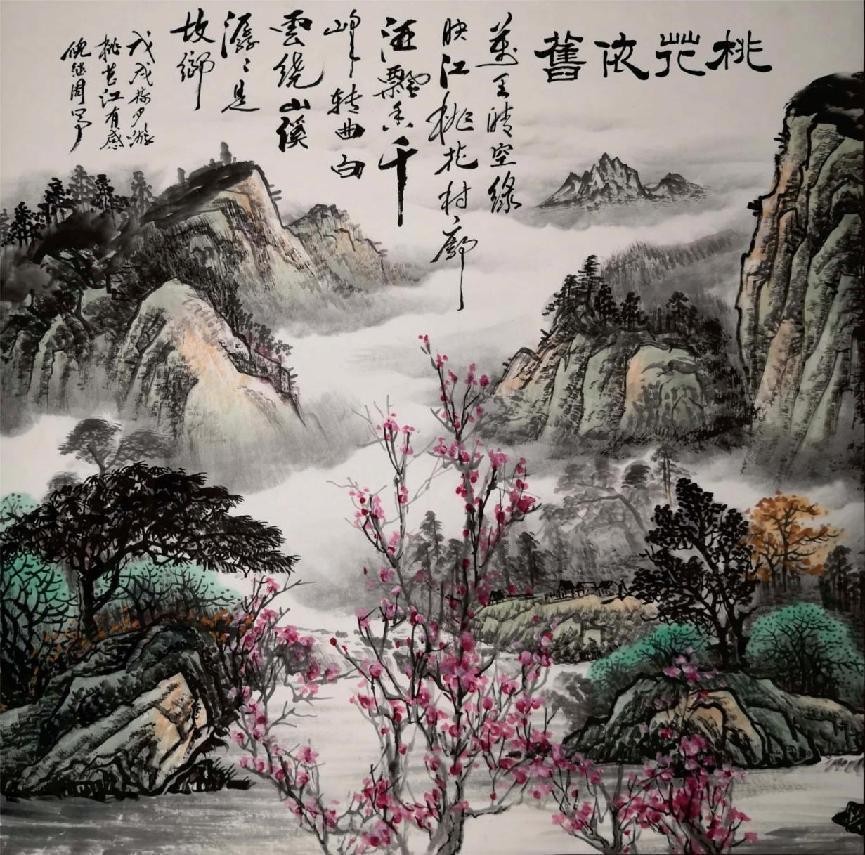 桃花依舊
萬里晴空綠
映江桃花村廊
酒飄香千
峰轉曲白
雲繞山溪
潺〻是
故鄉
戊戌梅月游
桃花江有感